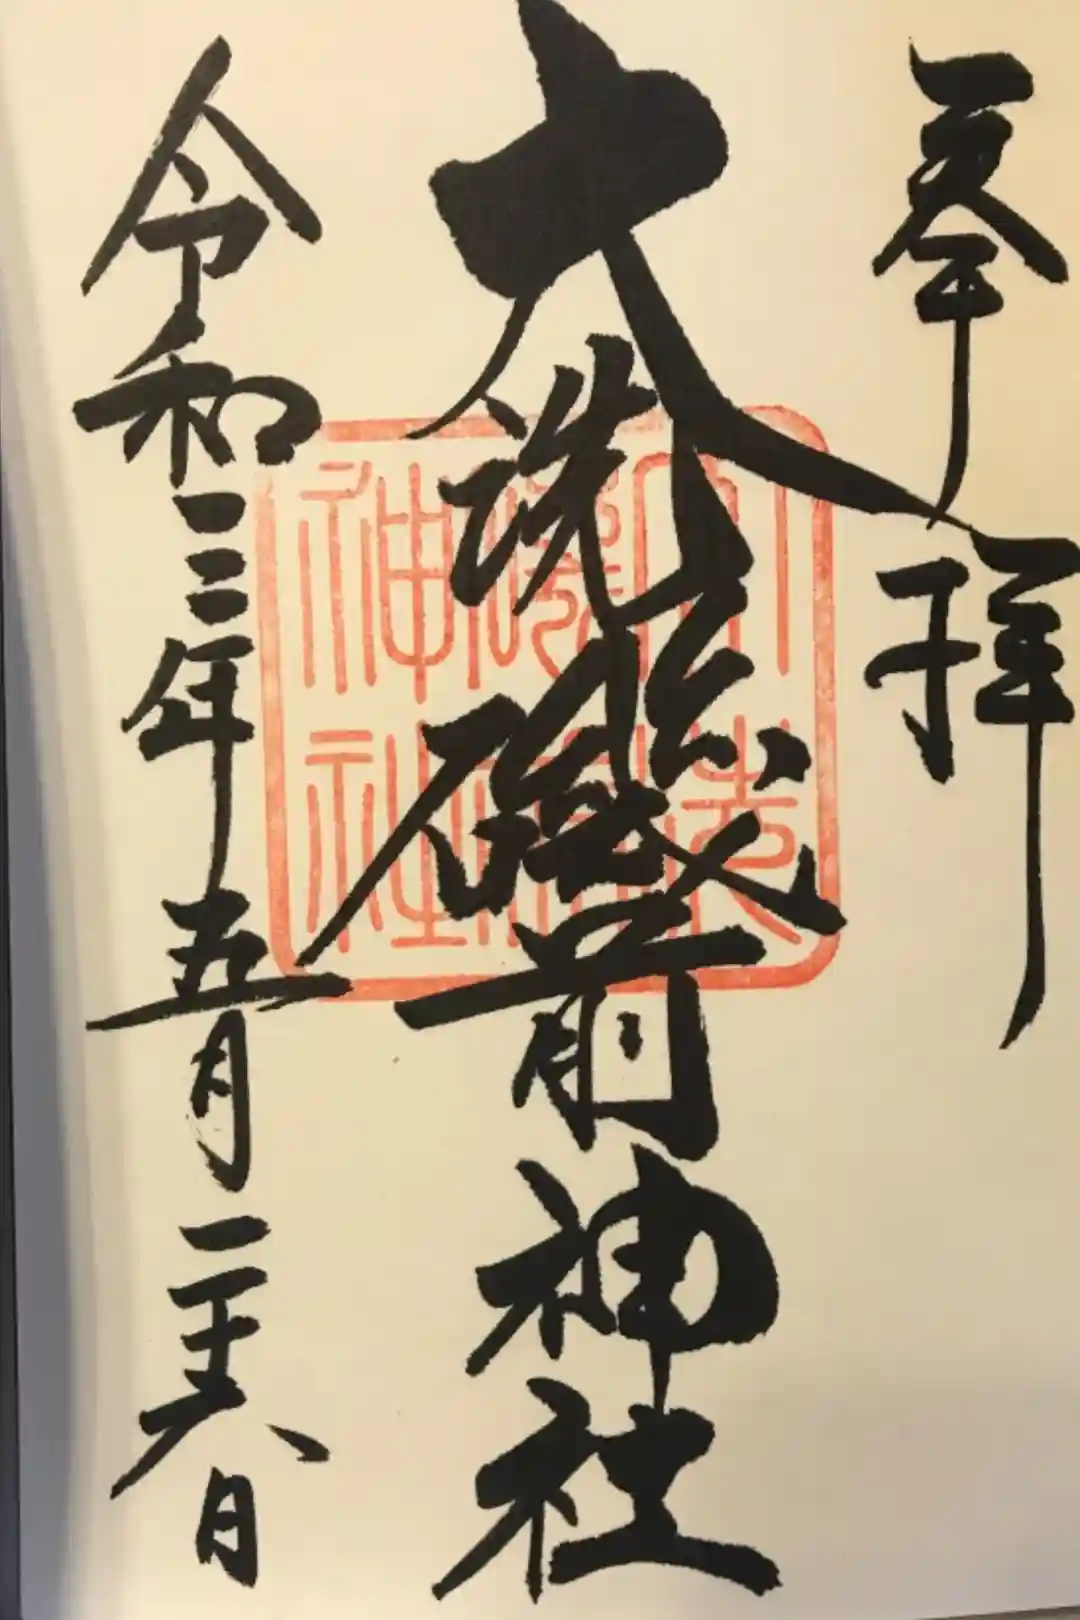 奉拝
大洗磯前神社
令和三年五月二十六日
大洗
神社